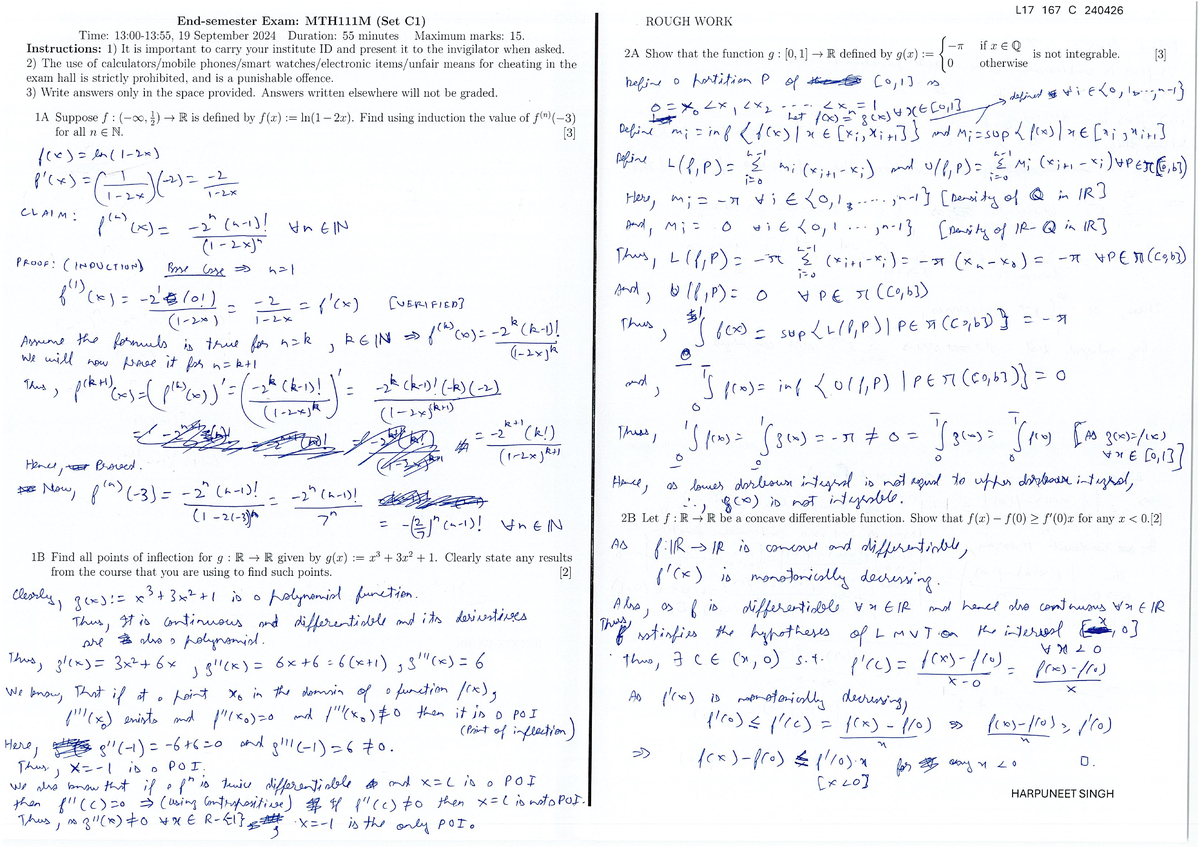 End-semester Exam: MTH111M (Set C1)
Time: 13:00-13:55, 19 September 2024 Duration: 55 minutes Maximum marks: 15.
Instructions: 1) It is important to carry your institute ID and present it to the invigilator when asked.
2) The use of calculators/mobile phones/smart watches/electronic items/unfair means for cheating in the
exam hall is strictly prohibited, and is a punishable offence.
3) Write answers only in the space provided. Answers written elsewhere will not be graded.
1A Suppose f : (−∞, 1/2) → ℝ is defined by f(x) := ln(1 − 2x). Find using induction the value of f⁽ⁿ⁾(−3)
for all n ∈ ℕ. [3]
f(x) = ln (1-2x)
f'(x) = (1/(1-2x))(-2) = -2/(1-2x)
CLAIM: f⁽ⁿ⁾(x) = -2ⁿ (n-1)!/(1-2x)ⁿ ∀n ∈ IN
PROOF: (INDUCTION) Base Case ⇒ n=1
f⁽¹⁾(x) = -2¹(0!)/(1-2x) = -2/(1-2x) = f'(x) [VERIFIED]
Assume the formula is true for n=k, k ∈ IN ⇒ f⁽ᵏ⁾(x) = -2ᵏ(k-1)!/(1-2x)ᵏ
We will now prove it for n=k+1
Thus, f⁽ᵏ⁺¹⁾(x) = (f⁽ᵏ⁾(x))' = (-2ᵏ(k-1)!/(1-2x)ᵏ)' = -2ᵏ(k-1)!(-k)(-2)/(1-2x)⁽ᵏ⁺¹⁾
= -2ᵏ⁺¹(k!)/(1-2x)ᵏ⁺¹
Hence, Proved.
Now, f⁽ⁿ⁾(-3) = -2ⁿ(n-1)!/(1-2(-3))ⁿ = -2ⁿ(n-1)!/7ⁿ
= -(2/7)ⁿ(n-1)! ∀n ∈ IN
1B Find all points of inflection for g : ℝ → ℝ given by g(x) := x³ + 3x² + 1. Clearly state any results
from the course that you are using to find such points. [2]
Clearly, g(x) := x³+3x²+1 is a polynomial function.
Thus, It is continuous and differentiable and its derivatives
are also a polynomial.
Thus, g'(x) = 3x²+6x, g''(x) = 6x+6 = 6(x+1), g'''(x) = 6
We know, That if at a point x₀ in the domain of a function f(x),
f'''(x₀) exists and f''(x₀)=0 and f'''(x₀)≠0 then it is a POI
(Point of inflection)
Here, g''(-1) = -6+6=0 and g'''(-1)=6 ≠0.
Thus, x=-1 is a POI.
We also know that if a fⁿ is twice differentiable and x=c is a POI
then f''(c)=0 ⇒ (using contrapositive) If f''(c)≠0 then x=c is not a POI.
Thus, as g''(x)≠0 ∀x∈ R-{-1}, x=-1 is the only POI.
ROUGH WORK
L17 167 C 240426
2A Show that the function g : [0, 1] → ℝ defined by g(x) := { −π if x ∈ ℚ; 0 otherwise is not integrable. [3]
Define a partition P of [0,1] as
0 = x₀ < x₁ < x₂ ---- < xₙ = 1
Let f(x) = g(x) ∀x∈[0,1]
defined ∀i ∈{0,1,...,n-1}
Define mᵢ = inf {f(x) | x ∈ [xᵢ, xᵢ₊₁]} and Mᵢ = sup {f(x) | x∈[xᵢ, xᵢ₊₁]
Define L(f,P) = Σᵢ₌₀ⁿ⁻¹ mᵢ(xᵢ₊₁-xᵢ) and U(f,P) = Σᵢ₌₀ⁿ⁻¹ Mᵢ(xᵢ₊₁-xᵢ) ∀P∈π([a,b])
Here, mᵢ = -π ∀i ∈ {0,1,.....,n-1} [Density of Q in IR]
And, Mᵢ = 0 ∀i ∈ {0,1 ... ,n-1} [Density of IR-Q in IR]
Thus, L(f,P) = -π Σᵢ₌₀ⁿ⁻¹ (xᵢ₊₁-xᵢ) = -π (xₙ-x₀) = -π ∀P∈π([a,b])
And, U(f,P) = 0 ∀P∈ π([a,b])
Thus, ∫ f(x) = sup{L(f,P) | P∈π([a,b])} = -π
and, ∫₀¹ f(x) = inf {U(f,P) | P∈π([a,b])} = 0
Thus, ∫₀¹ f(x) = ∫₀¹ g(x) = -π ≠ 0 = ∫₀¹ g(x) = ∫₀¹ f(x) [As g(x)=f(x)
∀x∈[0,1]]
Hence, as lower darboux integral is not equal to upper darboux integral,
∴, g(x) is not integrable.
2B Let f : ℝ → ℝ be a concave differentiable function. Show that f(x) − f(0) ≥ f′(0)x for any x < 0.[2]
As f: IR → IR is concave and differentiable,
f'(x) is monotonically decreasing.
Also, as f is differentiable ∀x∈IR and hence also continuous ∀x∈IR
Thus, f satisfies the hypotheses of LMVT on the interval [x, 0]
∀x<0
Thus, ∃ c∈(x,0) s.t. f'(c) = f(x)-f(0)/x-0 = f(x)-f(0)/x
As f'(x) is monotonically decreasing,
f'(0) ≤ f'(c) = f(x)-f(0)/x ⇒ f(x)-f(0)/x ≥ f'(0)
⇒ f(x)-f(0) ≤ f'(0).x for any x<0 □.
[x<0]
HARPUNEET SINGH